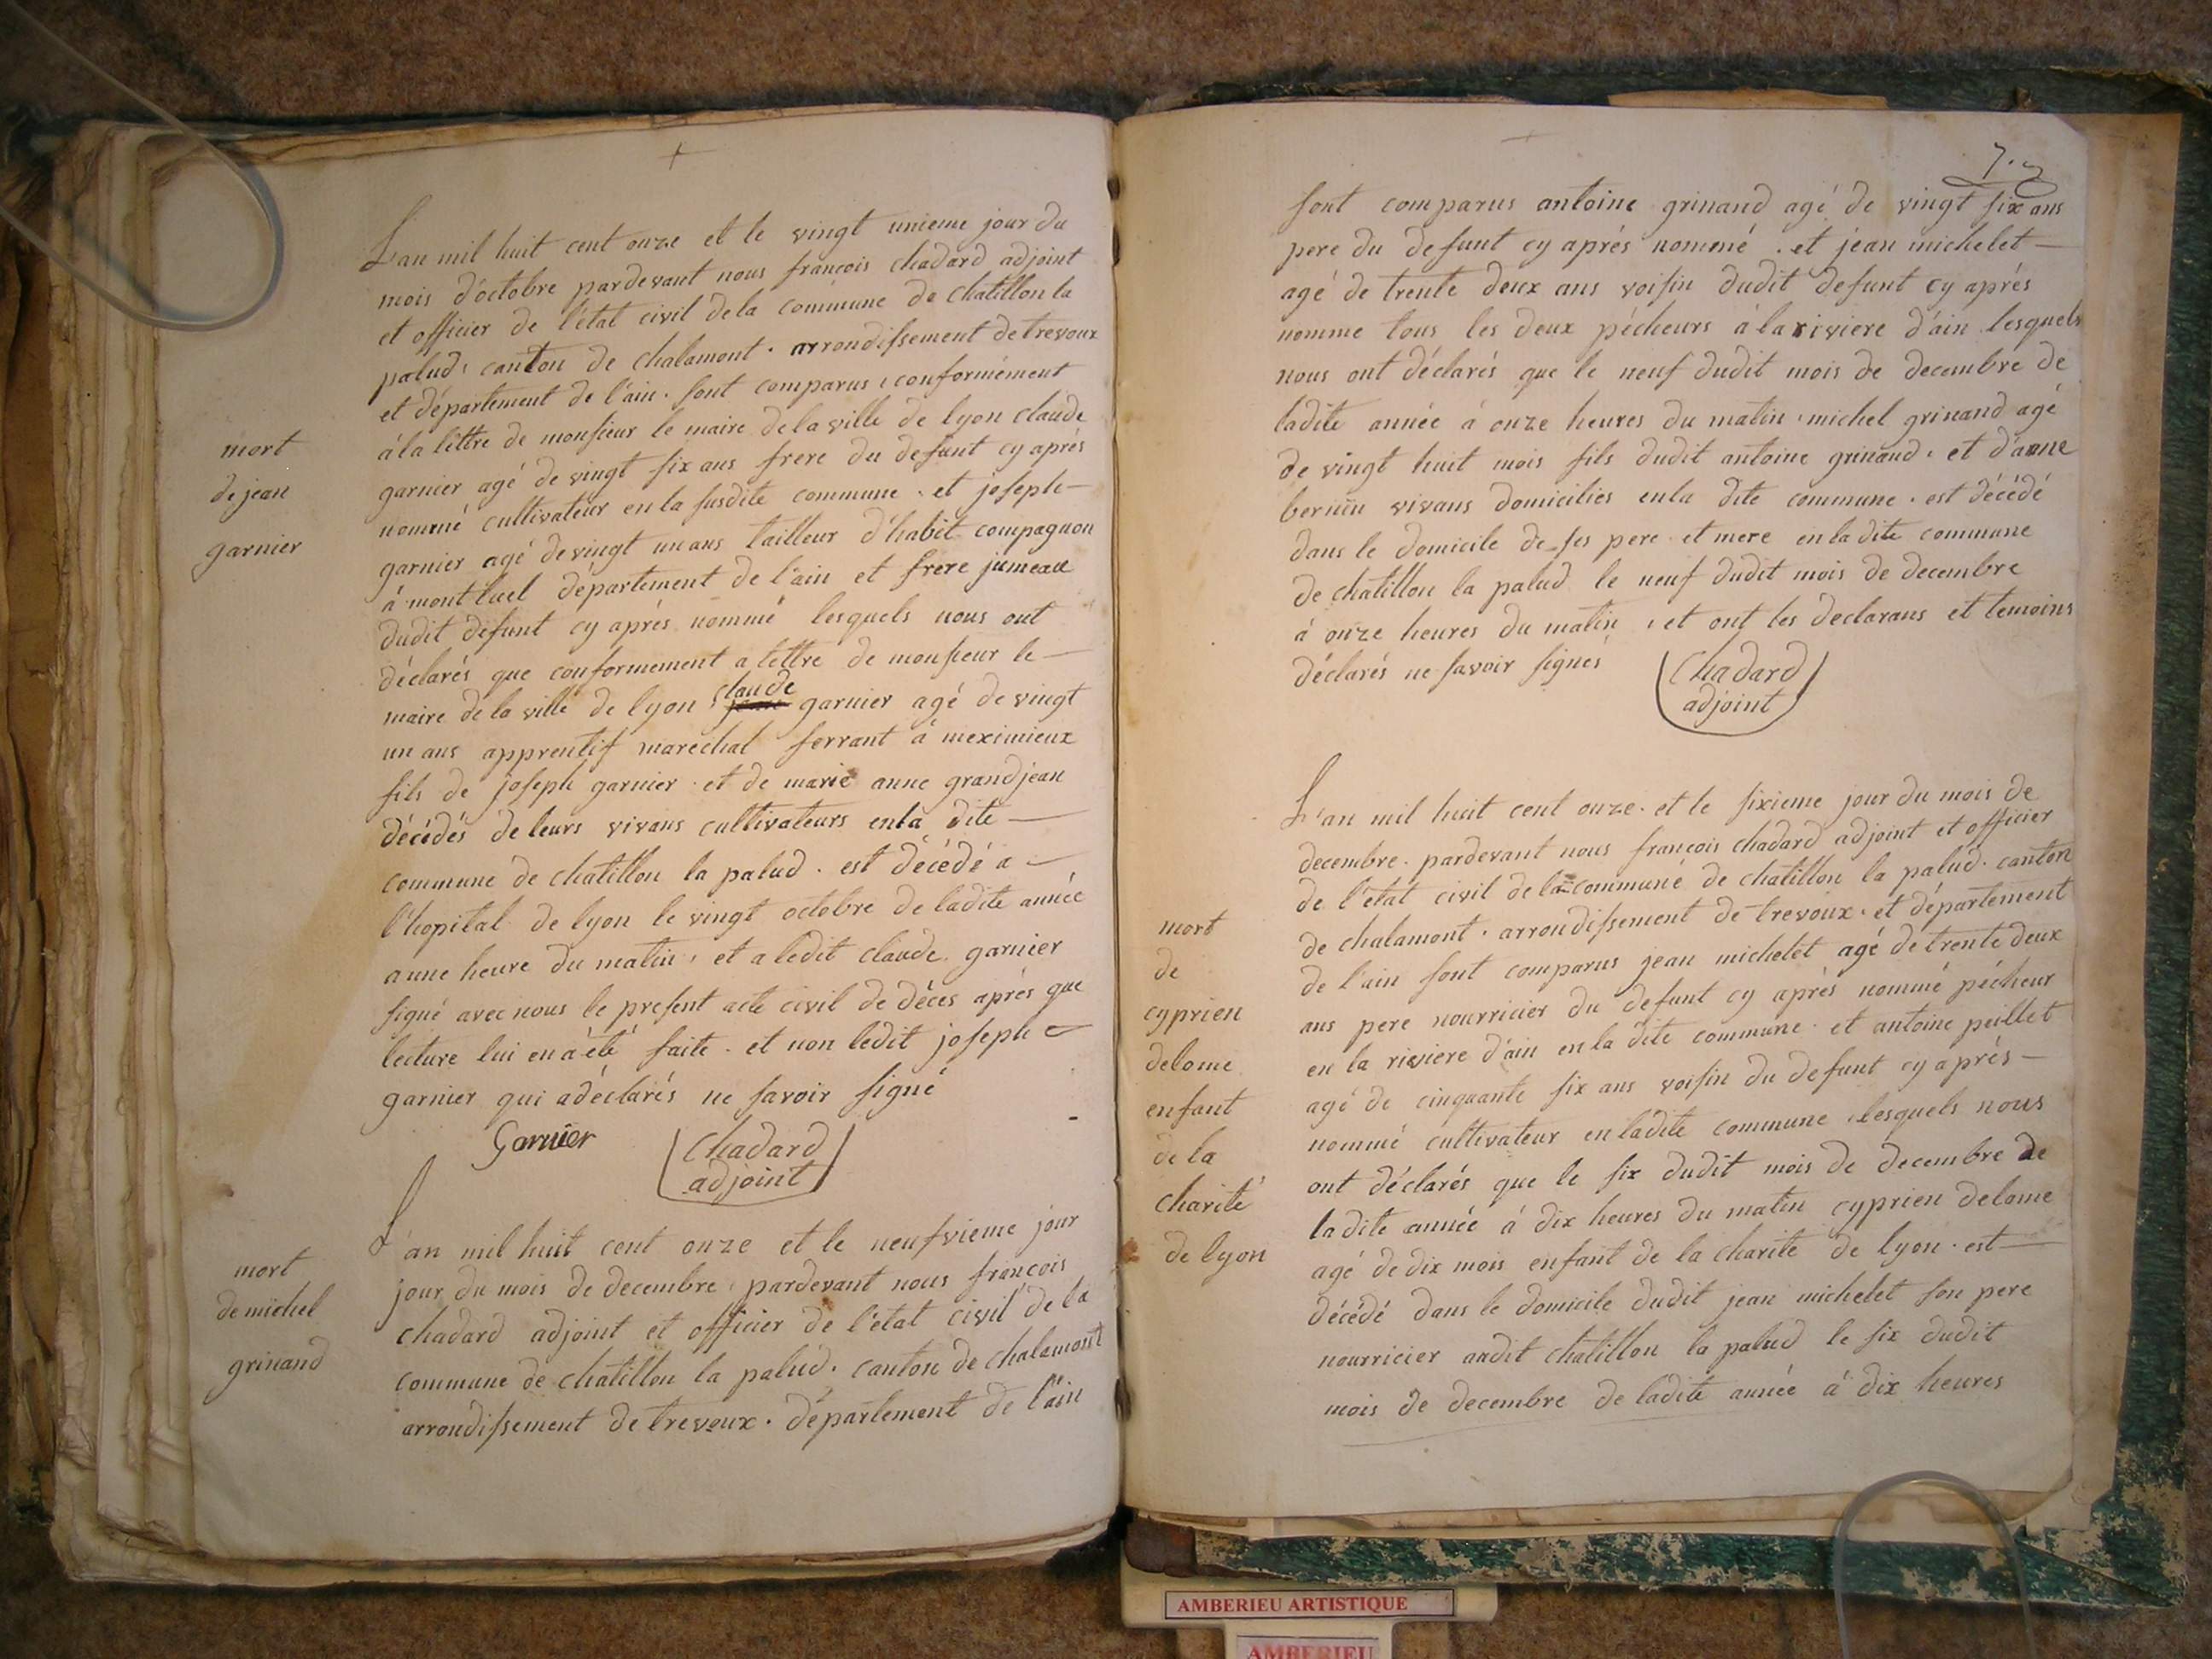 L'an mil huit cent onze et le vingt unieme jour du
mois d'octobre pardevant nous françois chadard adjoint
et officier de l'état civil de la commune de chatillon la
palud, canton de chalamont. arrondissement de trevoux
et département de l'ain. sont comparus, conformément
mort
de jean
garnier
à la lèttre de monsieur le maire de la ville de lyon claude
garnier agé de vingt six ans frere du defunt cy aprés
nommé cultivateur en la susdite commune. et joseph-
garnier agé de vingt un ans tailleur d'habit compagnon
á montluel département de l'ain et frere jumeau
dudit défunt cy aprés nommé lesquels nous ont
déclarés que conformement a lettre de monsieur le-
maire de la ville de lyon, claude garnier agé de vingt
un ans apprentif marechal ferrant á meximieux
fils de joseph garnier et de marie anne grandjean
décédés de leurs vivans cultivateurs en la dite-
commune de chatillon la palud. est décédé a-
l'hopital de lyon le vingt octobre de ladite année
a une heure du matin, et a ledit claude garnier
signé avec nous le present acte civil de déces aprés que
lecture lui en a été faite. et non ledit joseph-
garnier qui a déclarés ne savoir signé
Garnier
Chadard
adjoint
mort
de michel
grinand
L'an mil huit cent onze et le neufvieme jour
jour du mois de decembre pardevant nous françois
chadard adjoint et officier de l'état civil de la
commune de chatillon la palud. canton de chalamont
arrondissement de trevoux. département de l'ain
sont comparus antoine grinand agé de vingt six ans
pere du defunt cy aprés nommé. et jean michelet-
agé de trente deux ans voisin dudit defunt cy aprés
nomme tous les deux pécheurs á la riviere d'ain lesquels
nous ont déclarés que le neuf dudit mois de decembre de
ladite année á onze heures du matin, michel grinand agé
de vingt huit mois fils dudit antoine grinand, et d'anne
bernin vivans domiciliés en la dite commune. est décédé
dans le domicile de ses pere et mere en la dite commune
de chatillon la palud le neuf dudit mois de decembre
á onze heures du matin, et ont les declarans et temoins
déclarés ne savoir signés
Chadard
adjoint
mort
de
cyprien
delome
enfant
de la
charité
de lyon
L'an mil huit cent onze. et le sixieme jour du mois de
decembre. pardevant nous françois chadard adjoint et officier
de l'état civil de la commune de chatillon la palud. canton
de chalamont. arrondissement de trevoux. et département
de l'ain sont comparus jean michelet agé de trente deux
ans pere nourricier du defunt cy aprés nommé pécheur
en la riviere d'ain en la dite commune. et antoine peillet
agé de cinquante six ans voisin du defunt cy aprés-
nommé cultivateur en ladite commune, lesquels nous
ont déclarés que le six dudit mois de decembre de
la dite année á dix heures du matin cyprien delome
agé de dix mois enfant de la charite de lyon. est-
décédé dans le domicile dudit jean michelet son pere
nourricier audit chatillon la palud le six dudit
mois de decembre de ladite année á dix heures
AMBERIEU ARTISTIQUE
AMBERIEU